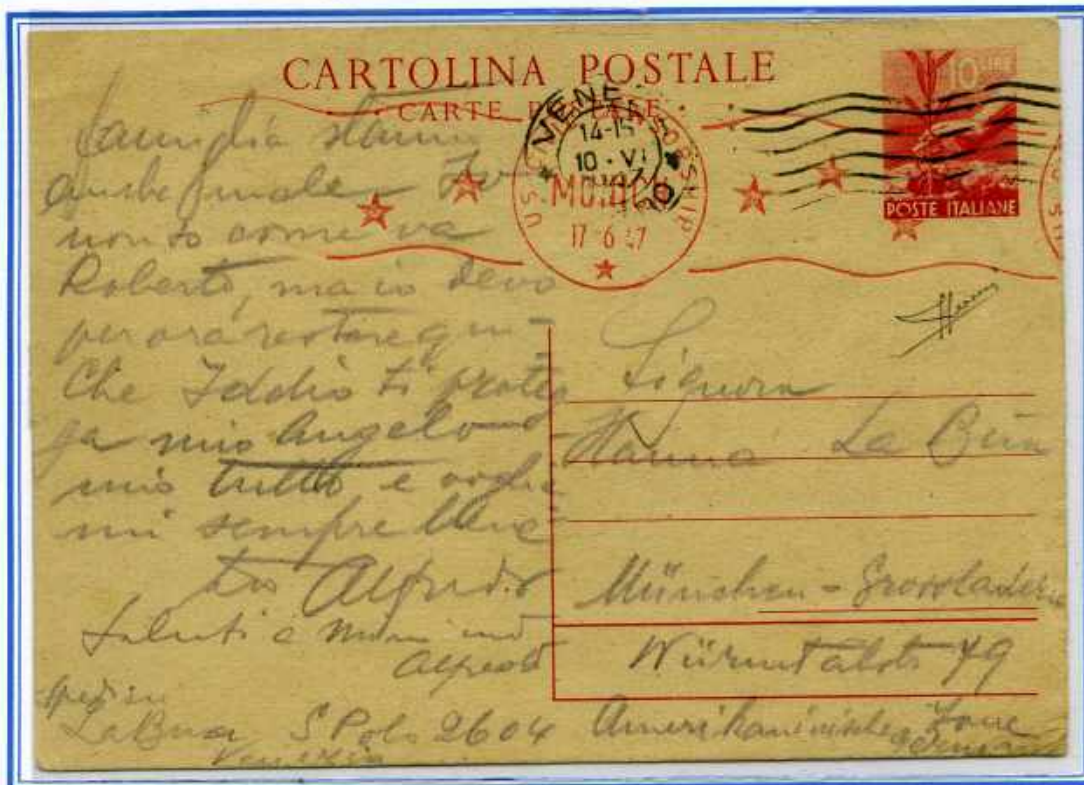 CARTOLINA POSTALE
CARTE POSTALE
10 LIRE
POSTE ITALIANE
VENEZIA
14-15
10 - VI
1947
U.S. CIVIL CENSORSHIP
MUNICH
17 6 47
famiglia stanno
anche
non so come va
Roberto, ma io devo
per ora restare qui -
Che Iddio ti proteg
ga mio Angelo
mio tutto e voglia
mi sempre bene
tuo Alfredo
Saluti a
Alfredo
La Bua S Polo 2604
Venezia
Signora
Hanna La Bua
München - Grosshadern
Würmtalstr 79
Amerikanische Zone
Germania